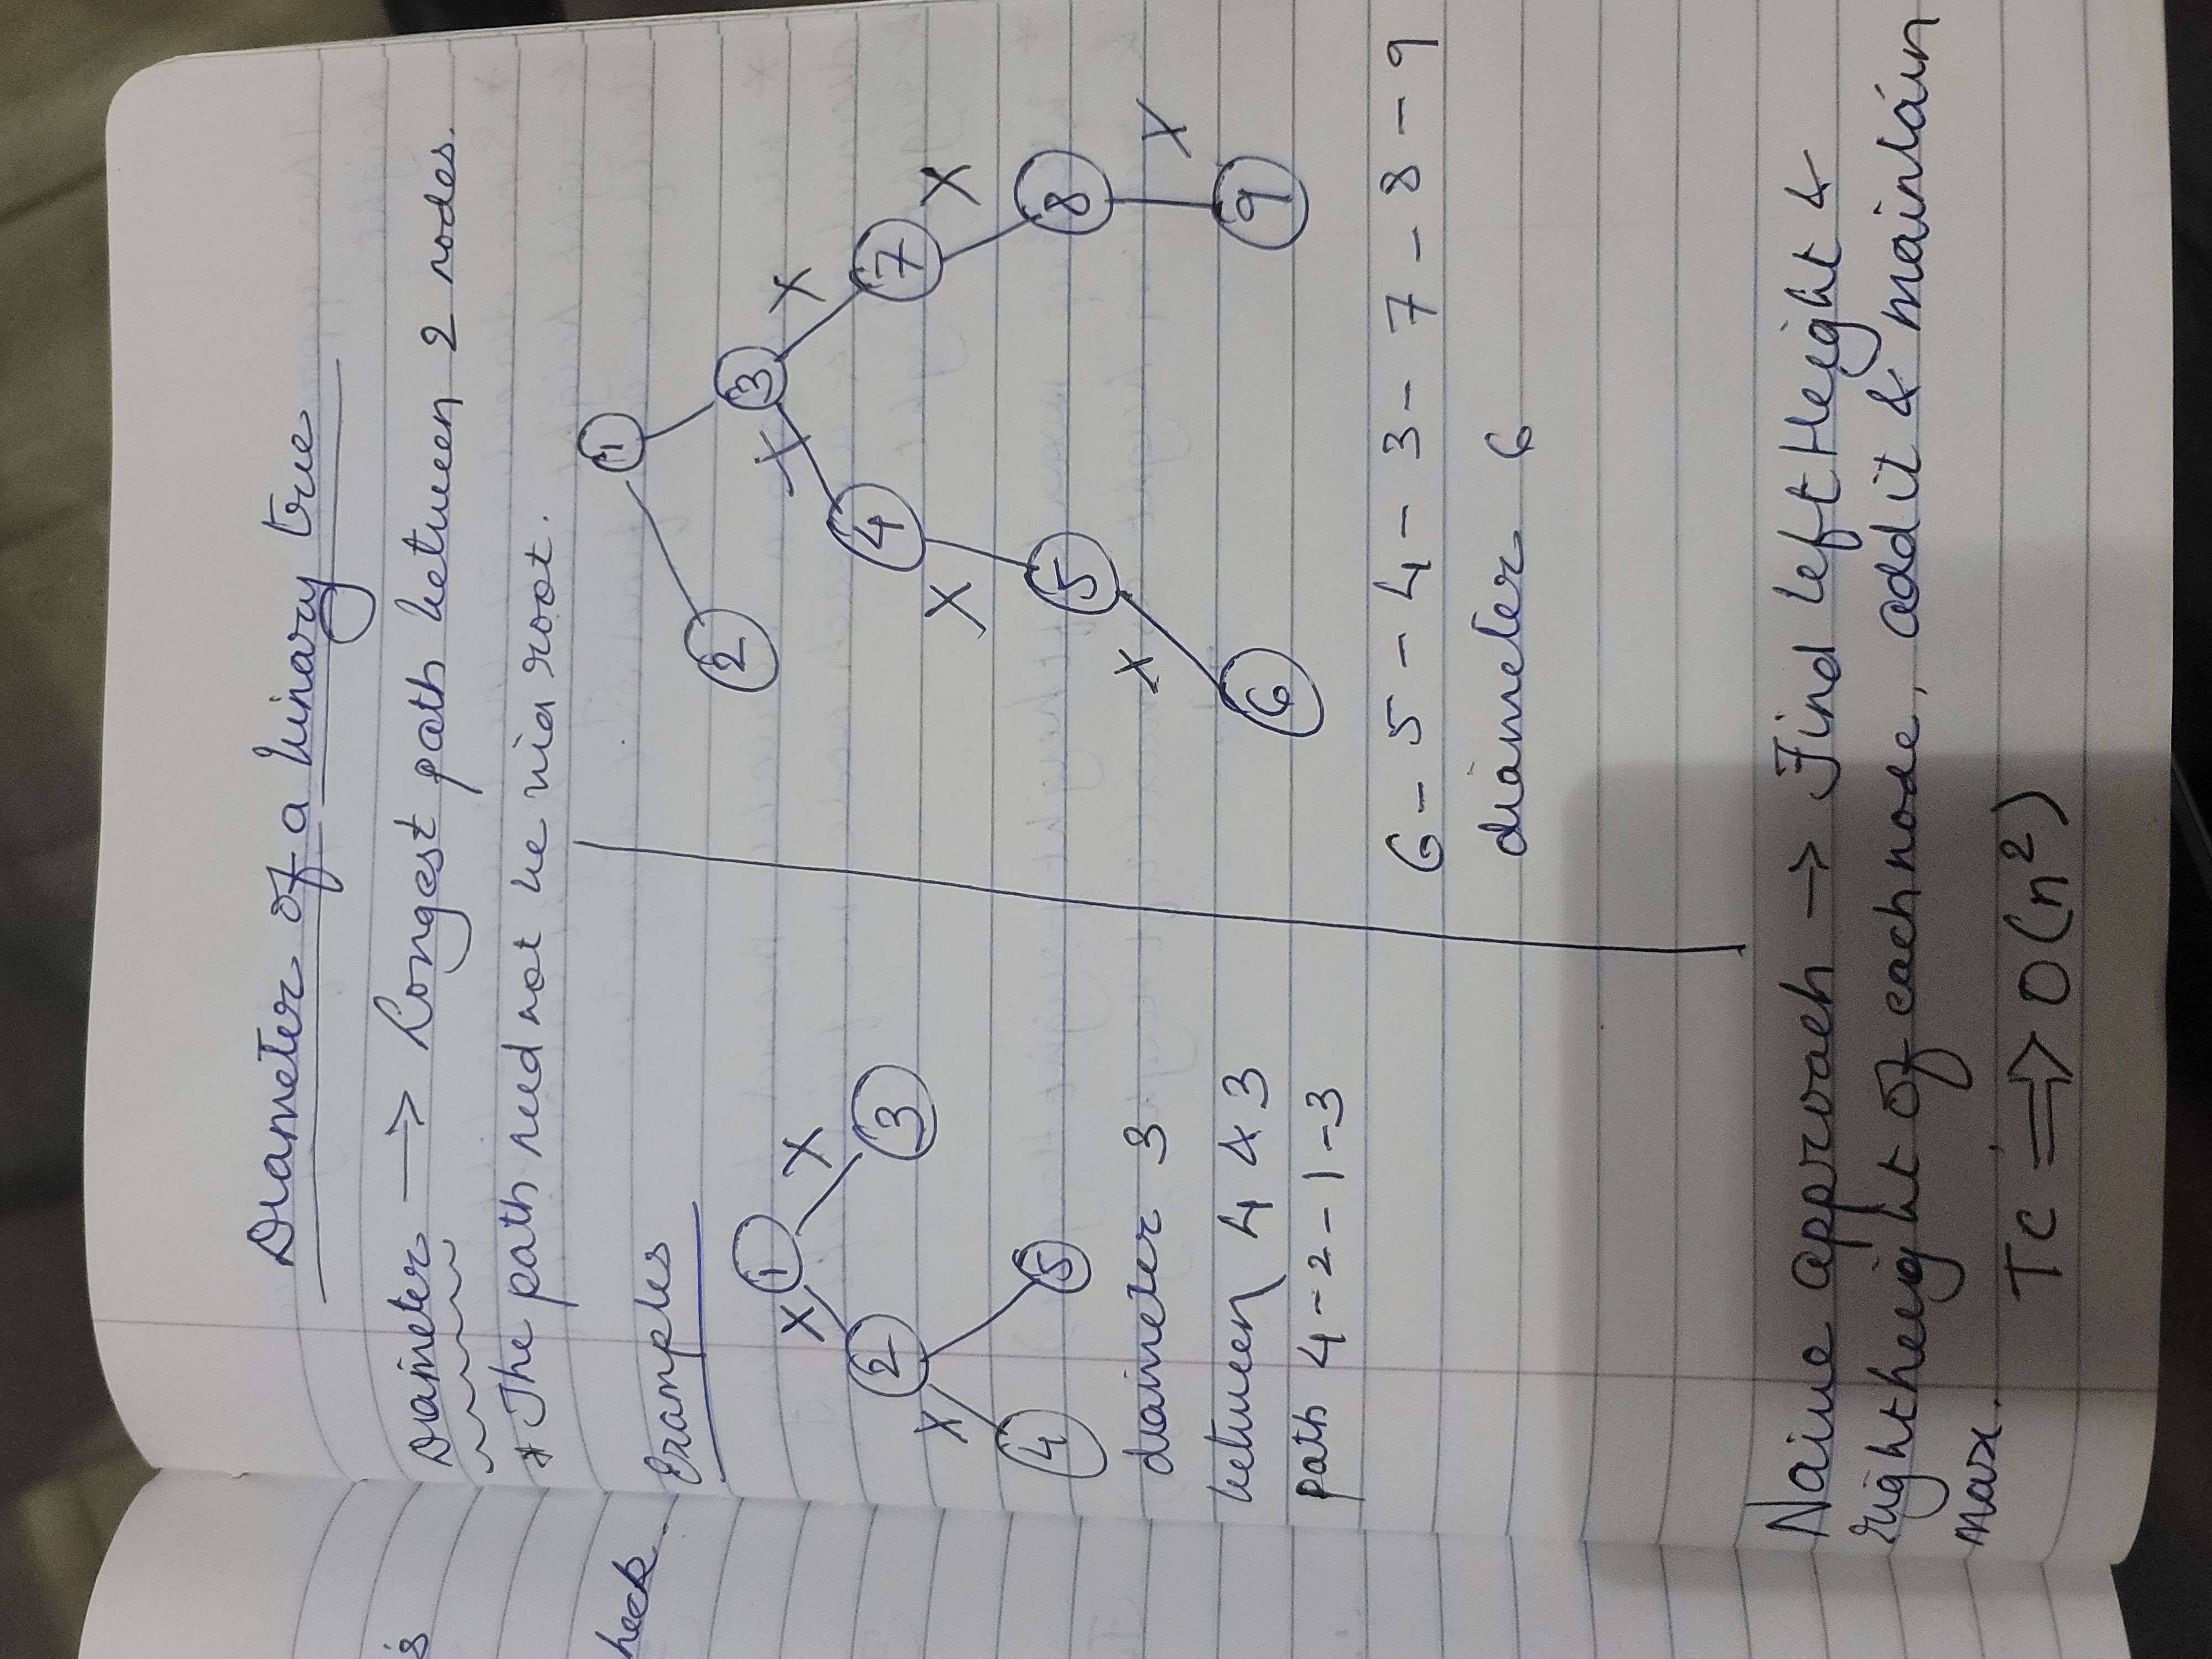 Diameter of a binary tree
Diameter → Longest path between 2 nodes.
* The path need not be via root.
's
heck.
Examples
1
X X
2 3
X
4 5
diameter 3
between 4 & 3
path 4-2-1-3
1
2 3
X X
4 7
X X
5 8
X X
6 9
6-5-4-3-7-8-9
diameter 6
Naive approach → Find left Height &
rightheight of each node, add it & maintain
max.
TC ⇒ O(n²)